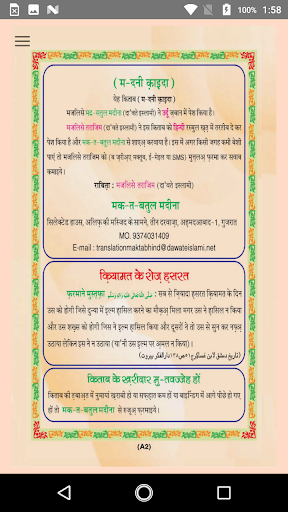 1:58
( म-दनी क़ाइदा )
येह किताब ( म-दनी क़ाइदा )
मजलिसे मद्र-सतुल मदीना (दा'वते इस्लामी) ने उर्दू ज़बान में पेश किया है।
मजलिसे तराजिम (दा'वते इस्लामी) ने इस किताब को हिन्दी रस्मुल ख़त् में तरतीब दे कर
पेश किया है और मक-त-बतुल मदीना से शाएअ़ करवाया है। इस में अगर किसी जगह कमी बेशी
पाएं तो मजलिसे तराजिम को (ब ज़रीअ़ए मक्तूब, ई-मेइल या SMS) मुत्तलअ़ फ़रमा कर सवाब
कमाइये।
राबिता : मजलिसे तराजिम (दा'वते इस्लामी)
मक-त-बतुल मदीना
सिलेक्टेड हाउस, अलिफ़ की मस्जिद के सामने, तीन दरवाज़ा, अहमदआबाद-1, गुजरात
MO. 9374031409
E-mail : translationmaktabhind@dawateislami.net
क़ियामत के रोज़ हसरत
फ़रमाने मुस्तफ़ा : सब से ज़ियादा हसरत क़ियामत के दिन
उस को होगी जिसे दुन्या में इल्म हासिल करने का मौक़अ़ मिला मगर उस ने हासिल न किया
और उस शख़्स को होगी जिस ने इल्म हासिल किया और दूसरों ने तो उस से सुन कर नफ़्अ़
उठाया लेकिन इस ने न उठाया (या'नी उस इल्म पर अ़मल न किया)।
किताब के ख़रीदार मु-तवज्जेह हों
किताब की त़बाअ़त में नुमायां ख़राबी हो या सफ़्हात कम हों या बाइन्डिंग में आगे पीछे हो गए
हों तो मक-त-बतुल मदीना से रुजूअ़ फ़रमाइये।
(A2)